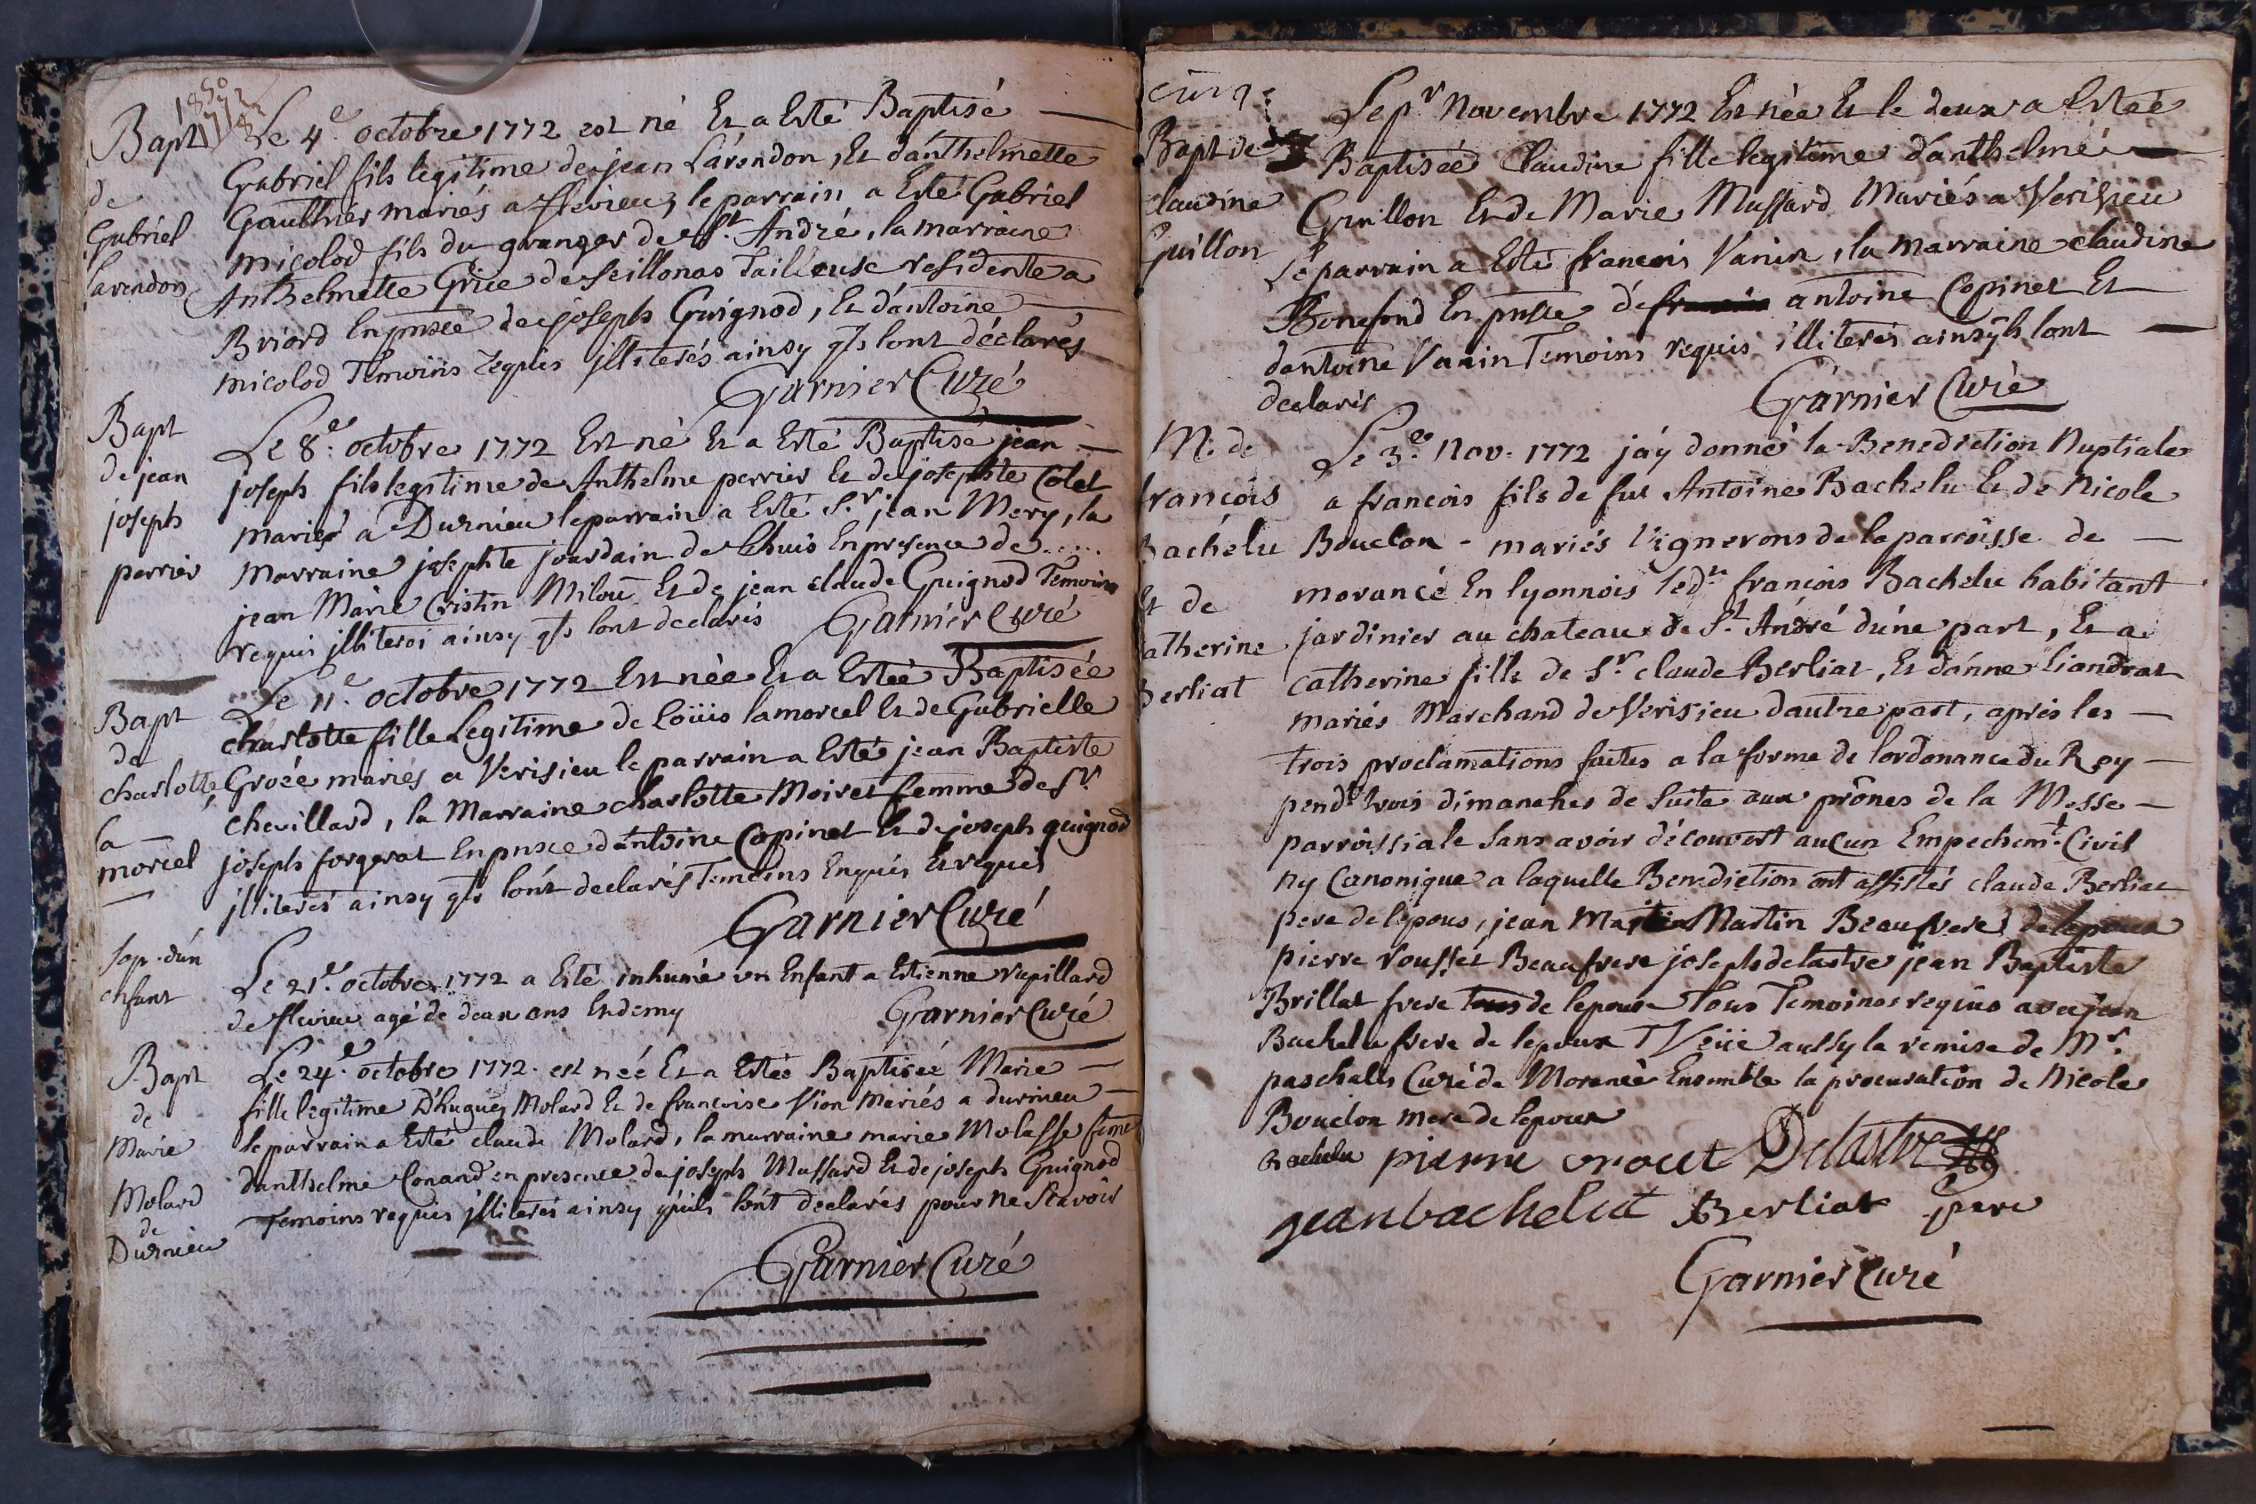 1850
1772
Bapt
de
Gabriel
Lavendon
Le 4e octobre 1772 est né Et a Esté Baptisé
Gabriel fils legitime de jean Lavendon, Et d'anthelmette
Gaulthier mariés a flevieu, le parrain a Esté Gabriel
micolod fils du granger de St André, la marraine
Anthelmette Grice de Seillonas Tailleuse residente a
Briord En pnsce de joseph Guignod, Et d'antoine
micolod Temoins requis jlliterés ainsy qls l'ont déclarés
Garnier Curé
Bapt
de jean
joseph
perrier
Le 8e octobre 1772 Est né Et a Esté Baptisé jean
joseph fils legitime de Anthelme perrier Et de josephte Colet
mariés a Durnieu le parrain a Esté Sr jean Mery, la
Marraine josephte jourdain de Lhuis En presence de .....
jean Marie Cristin Milou Et de jean claude Guignod Temoins
requis jlliterés ainsy qls l'ont declarés Garnier Curé
Bapt
de
charlotte
la
morcel
Le 11e octobre 1772 Est née Et a Estée Baptisée
charlotte fille Legitime de Loüis lamorcel Et de Gabrielle
Grozée mariés a Verisieu le parrain a Esté jean Baptiste
chevillard, la Marraine charlotte Moiret femme de Sr
joseph forgerat En pnsce d'antoine Copinet Et de joseph guignod
jlliterés ainsy qls l'ont declarés Temoins Enquis Et requis
Garnier Curé
Sep. d'un
enfant
Le 21e octobre 1772 a Esté inhumé un Enfant a Estienne rapillard
de flevieu agé de deux ans Endemy Garnier Curé
Bapt
de
Marie
Molard
de
Durnieu
Le 24e octobre 1772. est née Et a Estée Baptisée Marie
fille legitime D'hugues Molard Et de francoise Vion Mariés a durnieu
le parrain a Esté claude Molard, la marraine marie Molasse feme
d'anthelme Conand en presence de joseph Massard Et de joseph Guignod
Temoins requis jlliterés ainsy qu'ils l'ont declarés pour ne Scavoir
Garnier Curé
cinq
Bapt de
claudine
Guillon
Le pr Novembre 1772 Est née Et le deux a Estée
Baptisée Claudine fille legitime d'anthelme
Guillon Et de Marie Massard Mariés a Verisieu
Le parrain a Esté francois Vanin, la marraine claudine
Bonefond En pnsce de antoine Copinet Et
d'antoine Vanin Temoins requis illiterés ainsy qls l'ont
declarés
Garnier Curé
M. de
francois
Bachelu
Et de
Catherine
Berliat
Le 3e Nov. 1772 j'ay donné la Benediction Nuptiale
a francois fils de fut Antoine Bachelu Et de Nicole
Bouclon - mariés Vignerons de la parroisse de
morancé En lyonnois led. francois Bachelu habitant
jardinier au chateau de St André d'une part, Et a
catherine fille de Sr claude Berliat, Et d'anne Liandrat
mariés Marchand de Verisieu d'autre part, après les
trois proclamations faites a la forme de l'ordonance du Roy
pendt trois dimanches de suite aux prônes de la Messe
parroissiale sans avoir découvert aucun Empechemt Civil
ny Canonique a laquelle Benediction ont assistés claude Berliat
pere de l'epous, jean Martin Beaufrere de lepoux
pierre rousset Beaufrere joseph delastre jean Baptiste
Brillat frere de lepouse Tous Temoins requis avec jean
Bachelu frere de lepoux Veüe aussy la remise de Mr.
paschalis Curé de Morancé Ensemble la procuration de Nicole
Bouclon mere de lepoux
Bachelu pierre Delastre
jean bachelut Berliat pere
Garnier Curé